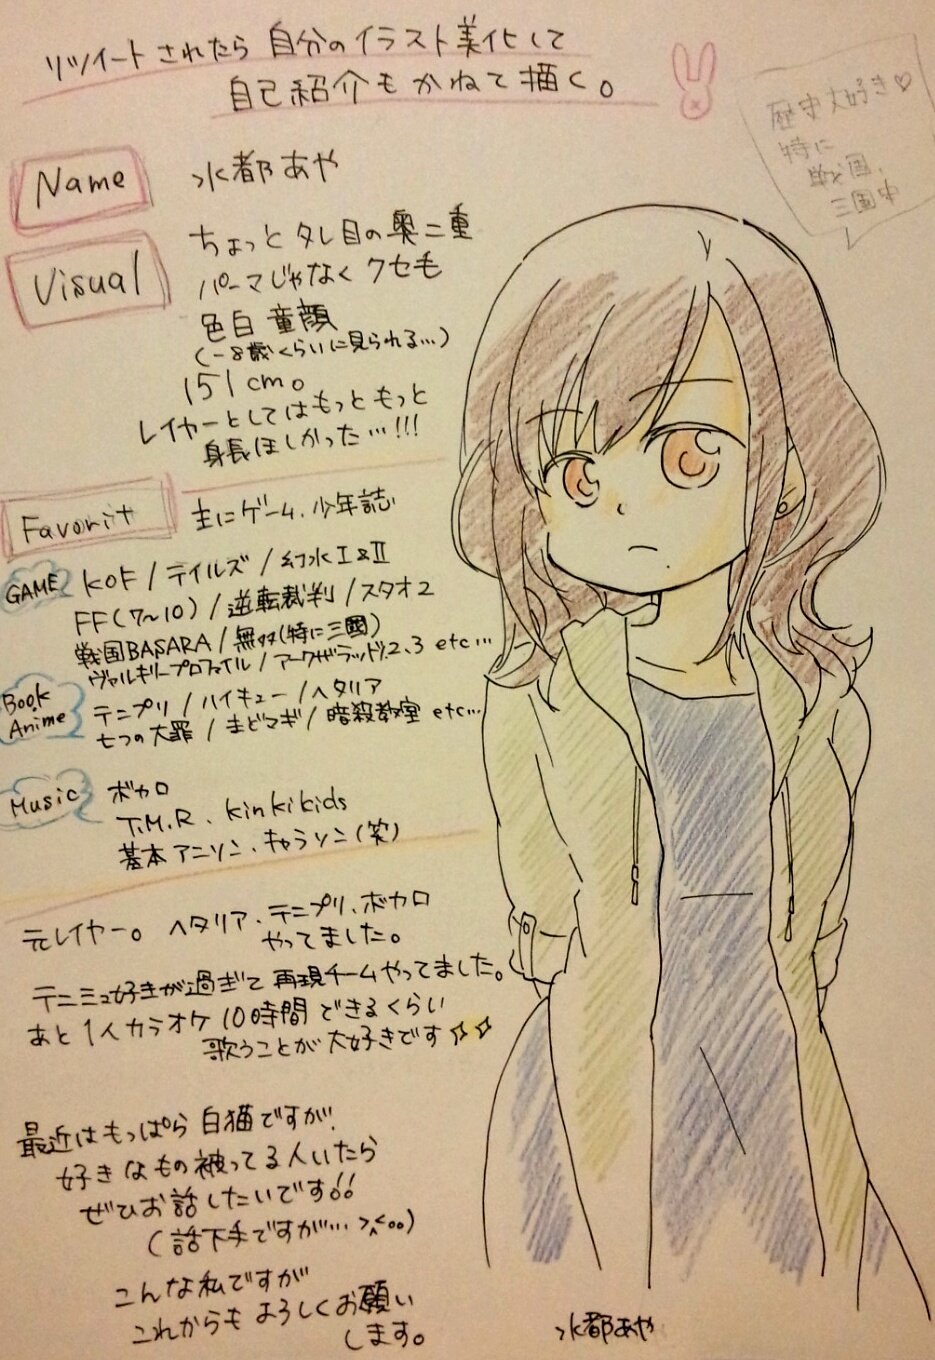 リツイートされたら自分のイラスト美化して
自己紹介もかねて描く。
歴史大好き♡
特に
戦国、
三国中
Name
水都あや
Visual
ちょっとタレ目の奥二重
パーマじゃなくクセ毛
色白童顔
(-8歳くらいに見られる…)
151cm。
レイヤーとしてはもっともっと
身長ほしかった…!!!
Favorit
主にゲーム、少年誌
GAME
KOF/テイルズ/幻水I&II
FF(7~10)/逆転裁判/スタオ2
戦国BASARA/無双(特に三國)
ヴァルキリープロファイル/アークザラッド1.2、3 etc…
Book Anime
テニプリ/ハイキュー/ヘタリア
七つの大罪/まどマギ/暗殺教室 etc…
Music
ボカロ
T.M.R、kinkikids
基本アニソン、キャラソン(笑)
元レイヤー。ヘタリア、テニプリ、ボカロ
やってました。
テニミュ好きが過ぎて再現チームやってました。
あと1人カラオケ10時間できるくらい
歌うことが大好きです✧✧
最近はもっぱら白猫ですが、
好きなもの被ってる人いたら
ぜひお話したいです!!
(話下手ですが…>^<。。)
こんな私ですが
これからもよろしくお願い
します。
水都あや